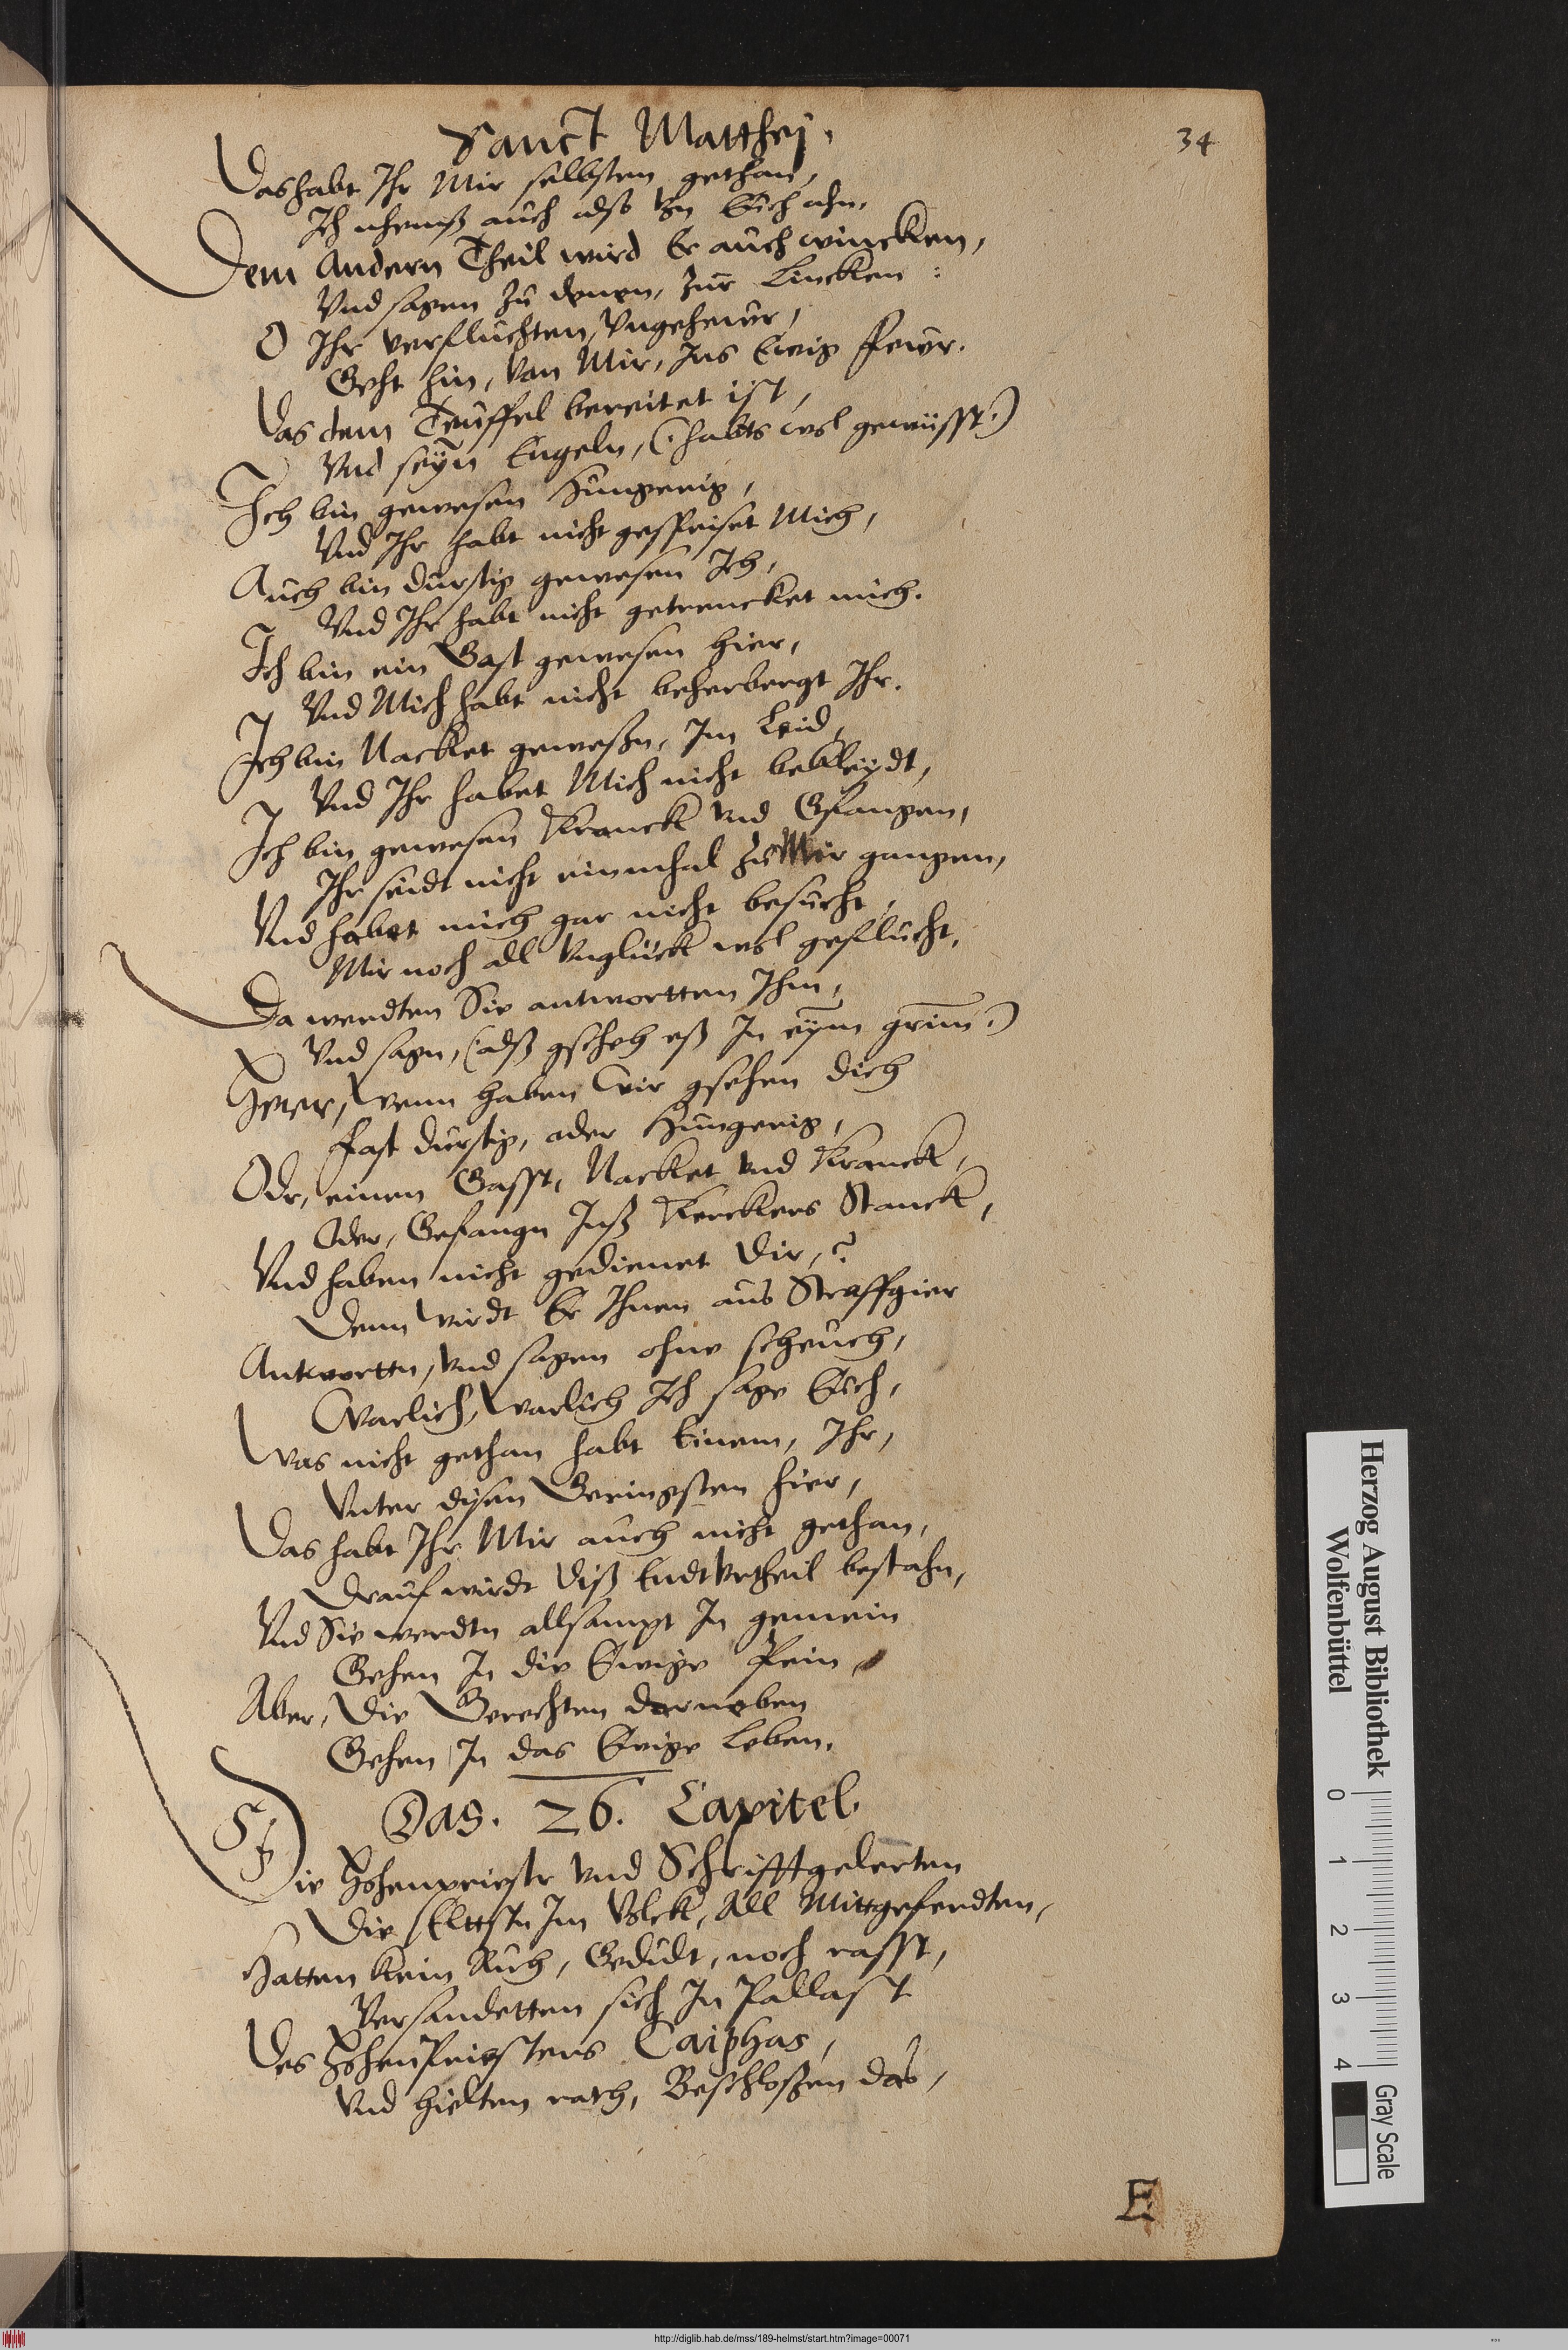 Sanct Matthej.
34
Das habt Ihr Mir selbsten gethan,
Ich nhemß auch also von Euch ahn.
Dem Andern Theil wird Er auch wincken,
Vnd sagen zu denen, zur Lincken:
O Ihr verfluchten Vngehewr,
Geht hin, von Mir, Ins Ewig fewr.
Das dem Teuffel bereitet ist,
Vnd seyn Engeln, (: habts wol gewüsst:)
Ich bin gewesen Hungerig,
Vnd Ihr habt nicht gespeiset Mich,
Auch bin durstig gewesen Ich,
Vnd Ihr habt nicht getrencket mich.
Ich bin ein Gast gewesen hier,
Vnd Mich habt nicht beherbergt Ihr.
Ich bin Nacket geweßn, Im Leid,
Vnd Ihr habet Mich nicht bekleydt,
Ich bin gewesen Kranck vnd Gfangen,
Ihr seidt nicht einmhal zu Mir gangen,
Vnd habet mich gar nicht besucht,
Mir noch all Vnglück wol geflucht.
Da werdten Sie antwortten Ihm,
Vnd sagn, (: alß gscheh eß In eym grim:)
Herr, wenn haben wir gsehen dich
fast durstig, oder Hungerig,
Odr, einen Gasst, Nacket vnd Kranck,
Oder, Gefangn Inß Kerckers Stanck,
Vnd haben nicht gedienet dir,?
Denn wirdt Er Ihnen aus Straffgier
Antwortn, vnd sagen ohne scheuch,
Warlich, Warlich Ich sage Euch,
Was nicht gethan habt Einem, Ihr,
Vnter disen Geringsten hier,
Das habt Ihr Mir auch nicht gethan,
Drauf wirdt diß Endt Vrtheil bestahn,
Vnd Sie werdtn allsampt In gemein
Gehen In die Ewige Pein,
Aber, die Gerechten darneben
Gehen, In das Ewige Leben.
Das. 26. Capitel
Die Hohenpriestr vnd Schrifftgelerten
Die Elttstn Im Volck, All Mittgeferdten,
Hatten kein Ruh, Gedult, noch rasst,
Versandetten sich In Pallast
Des HohenPriesters Caiphas,
Vnd hielten rath, Beschloßen das,
E
Herzog August Bibliothek
Wolfenbüttel
0 1 2 3 4
Gray Scale
http://diglib.hab.de/mss/189-helmst/start.htm?image=00071